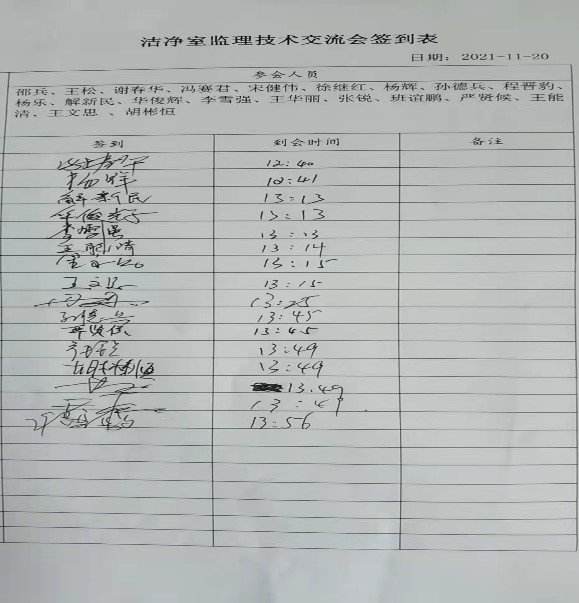 洁净室监理技术交流会签到表
日期：2021-11-20
参会人员
邵兵、王松、谢春华、冯赛君、宋健伟、徐继红、杨辉、孙德兵、程晋豹、
杨乐、解新民、华俊辉、李雪强、王华丽、张锐、班谊鹏、严贤候、王能
清、王文思、胡彬恒
签到 到会时间 备注
谢春华 12:40
杨辉 12:41
解新民 13:13
华俊辉 13:13
13:13
13:14
13:15
王文思 13:15
13:25
孙德兵 13:45
严贤候 13:45
张锐 13:49
胡彬恒 13:49
13:49
13:49
13:56